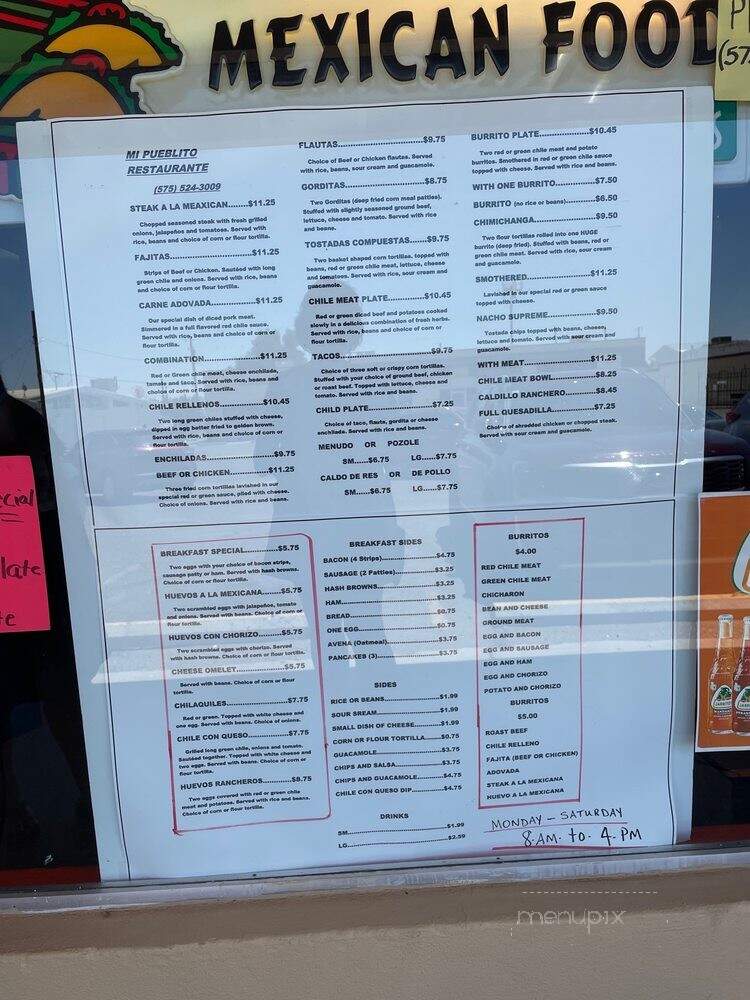 MEXICAN FOOD
P
(57
MI PUEBLITO
RESTAURANTE
(575) 524-3009
STEAK A LA MEAXICAN.......$11.25
Chopped seasoned steak with fresh grilled
onions, jalapeños and tomatoes. Served with
rice, beans and choice of corn or flour tortilla.
FAJITAS.......$11.25
Strips of Beef or Chicken. Sautéed with long
green chile and onions. Served with rice, beans
and choice of corn or flour tortilla.
CARNE ADOVADA.......$11.25
Our special dish of diced pork meat.
Simmered in a full flavored red chile sauce.
Served with rice, beans and choice of corn or
flour tortilla.
COMBINATION.......$11.25
Red or Green chile meat, cheese enchilada,
tamale and taco. Served with rice, beans and
choice of corn or flour tortilla.
CHILE RELLENOS.......$10.45
Two long green chiles stuffed with cheese,
dipped in egg batter fried to golden brown.
Served with rice, beans and choice of corn or
flour tortilla.
ENCHILADAS.......$9.75
BEEF OR CHICKEN.......$11.25
Three fried corn tortillas lavished in our
special red or green sauce, piled with cheese.
Choice of onions. Served with rice and beans.
FLAUTAS.......$9.75
Choice of Beef or Chicken flautas. Served
with rice, beans, sour cream and guacamole.
GORDITAS.......$8.75
Two Gorditas (deep fried corn meal patties).
Stuffed with slightly seasoned ground beef,
lettuce, cheese and tomato. Served with rice
and beans.
TOSTADAS COMPUESTAS.......$9.75
Two basket shaped corn tortillas, topped with
beans, red or green chile meat, lettuce, cheese
and tomatoes. Served with rice, sour cream and
guacamole.
CHILE MEAT PLATE.......$10.45
Red or green diced beef and potatoes cooked
slowly in a delicious combination of fresh herbs.
Served with rice, beans and choice of corn or
flour tortilla.
TACOS.......$9.75
Choice of three soft or crispy corn tortillas.
Stuffed with your choice of ground beef, chicken
or roast beef. Topped with lettuce, cheese and
tomato. Served with rice and beans.
CHILD PLATE.......$7.25
Choice of taco, flauta, gordita or cheese
enchilada. Served with rice and beans.
MENUDO OR POZOLE
SM......$6.75 LG......$7.75
CALDO DE RES OR DE POLLO
SM......$6.75 LG......$7.75
BURRITO PLATE.......$10.45
Two red or green chile meat and potato
burritos. Smothered in red or green chile sauce
topped with cheese. Served with rice and beans.
WITH ONE BURRITO.......$7.50
BURRITO (no rice or beans).......$6.50
CHIMICHANGA.......$9.50
Two flour tortillas rolled into one HUGE
burrito (deep fried). Stuffed with beans, red or
green chile meat. Served with rice, sour cream
and guacamole.
SMOTHERED.......$11.25
Lavished in our special red or green sauce
topped with cheese.
NACHO SUPREME.......$9.50
Tostada chips topped with beans, cheese,
lettuce and tomato. Served with sour cream and
guacamole.
WITH MEAT.......$11.25
CHILE MEAT BOWL.......$8.25
CALDILLO RANCHERO.......$8.45
FULL QUESADILLA.......$7.25
Choice of shredded chicken or chopped steak.
Served with sour cream and guacamole.
BREAKFAST SPECIAL.......$5.75
Two eggs with your choice of bacon strips,
sausage patty or ham. Served with hash browns.
Choice of corn or flour tortilla.
HUEVOS A LA MEXICANA.......$5.75
Two scrambled eggs with jalapeños, tomato
and onions. Served with beans. Choice of corn or
flour tortilla.
HUEVOS CON CHORIZO.......$5.75
Two scrambled eggs with chorizo. Served
with hash browns. Choice of corn or flour tortilla.
CHEESE OMELET.......$5.75
Served with beans. Choice of corn or flour
tortilla.
CHILAQUILES.......$7.75
Red or green. Topped with white cheese and
one egg. Served with beans. Choice of onions.
CHILE CON QUESO.......$7.75
Grilled long green chile, onions and tomato.
Sautéed together. Topped with white cheese and
two eggs. Served with beans. Choice of corn or
flour tortilla.
HUEVOS RANCHEROS.......$8.75
Two eggs covered with red or green chile
meat and potatoes. Served with rice and beans.
Choice of corn or flour tortilla.
BREAKFAST SIDES
BACON (4 Strips).......$4.75
SAUSAGE (2 Patties).......$3.25
HASH BROWNS.......$3.25
HAM.......$3.25
BREAD.......$0.75
ONE EGG.......$0.75
AVENA (Oatmeal).......$3.75
PANCAKES (3).......$3.75
SIDES
RICE OR BEANS.......$1.99
SOUR SREAM.......$1.99
SMALL DISH OF CHEESE.......$1.99
CORN OR FLOUR TORTILLA.......$0.75
GUACAMOLE.......$3.75
CHIPS AND SALSA.......$3.75
CHIPS AND GUACAMOLE.......$4.75
CHILE CON QUESO DIP.......$4.75
DRINKS
SM.......$1.99
LG.......$2.59
BURRITOS
$4.00
RED CHILE MEAT
GREEN CHILE MEAT
CHICHARON
BEAN AND CHEESE
GROUND MEAT
EGG AND BACON
EGG AND SAUSAGE
EGG AND HAM
EGG AND CHORIZO
POTATO AND CHORIZO
BURRITOS
$5.00
ROAST BEEF
CHILE RELLENO
FAJITA (BEEF OR CHICKEN)
ADOVADA
STEAK A LA MEXICANA
HUEVO A LA MEXICANA
MONDAY - SATURDAY
8·AM· to· 4·PM
ecial
late
te
menupix